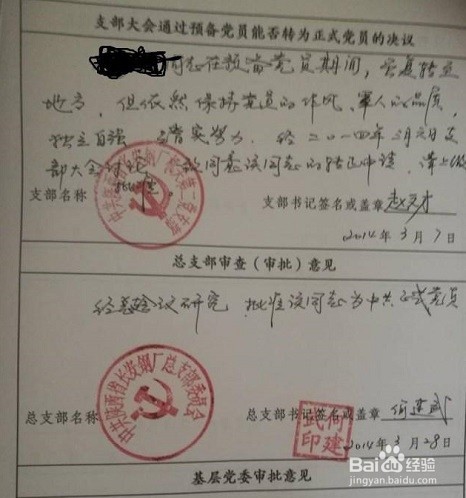 支部大会通过预备党员能否转为正式党员的决议
同志在预备党员期间，
地方，但依然保持党员的作风，军人的品质，
独立自强 踏实努力，经二〇一四年三月六日支
部大会讨论 一致同意该同志的转正申请，请上级
批准
支部名称
支部书记签名或盖章
2014年3月7日
总支部审查（审批）意见
经总支会议研究，批准该同志为中共正式党员
中共陕西省长安钢厂总支部委员会
总支部名称
总支部书记签名或盖章 何建武
何建武印
2014年3月28日
基层党委审批意见
Baidu经验
jingyan.baidu.com